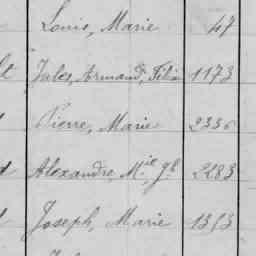 Louis, Marie 47
Jules, Armand, Félix 1173
Pierre, Marie 2336
Alexandre, M.ie, J.h 2283
Joseph, Marie 1313